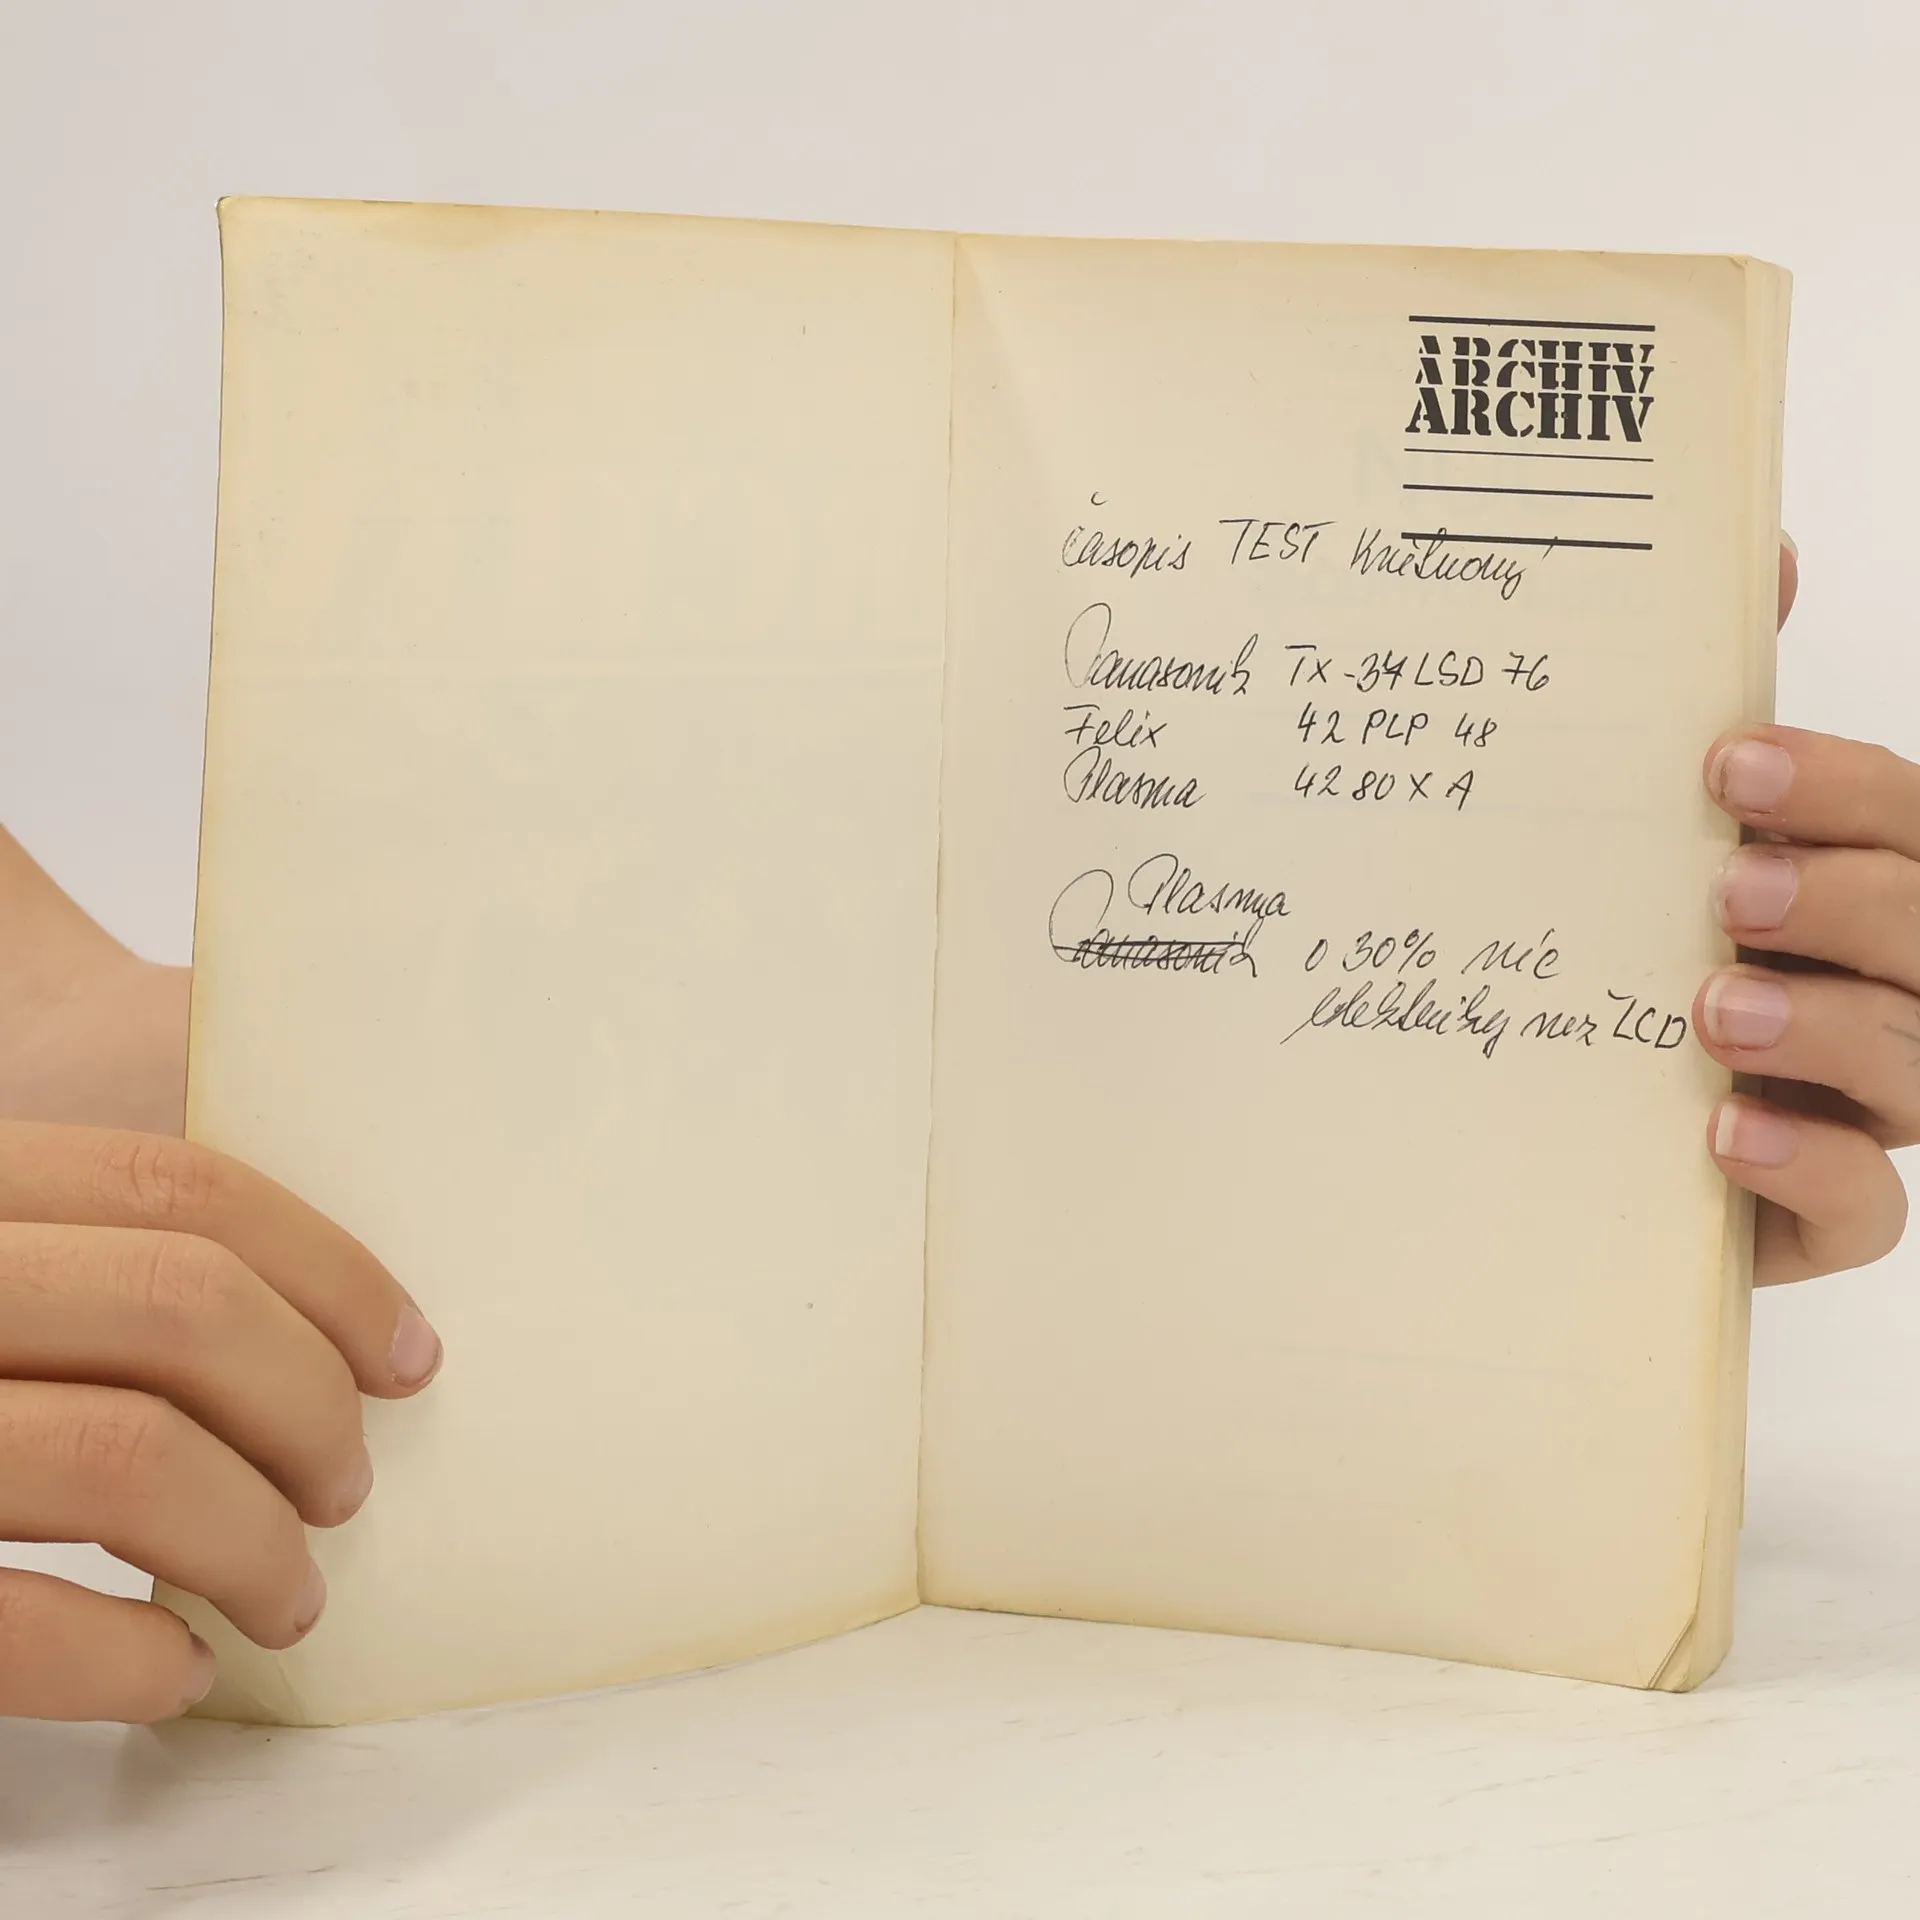 ARCHIV
ARCHIV
ARCHIV
časopis TEST Květnový
Panasonik TX-37LSD 76
Felix 42 PLP 48
Plasma 42 80 X A
Plasma
Panasonik o 30% víc
elektřiky než LCD